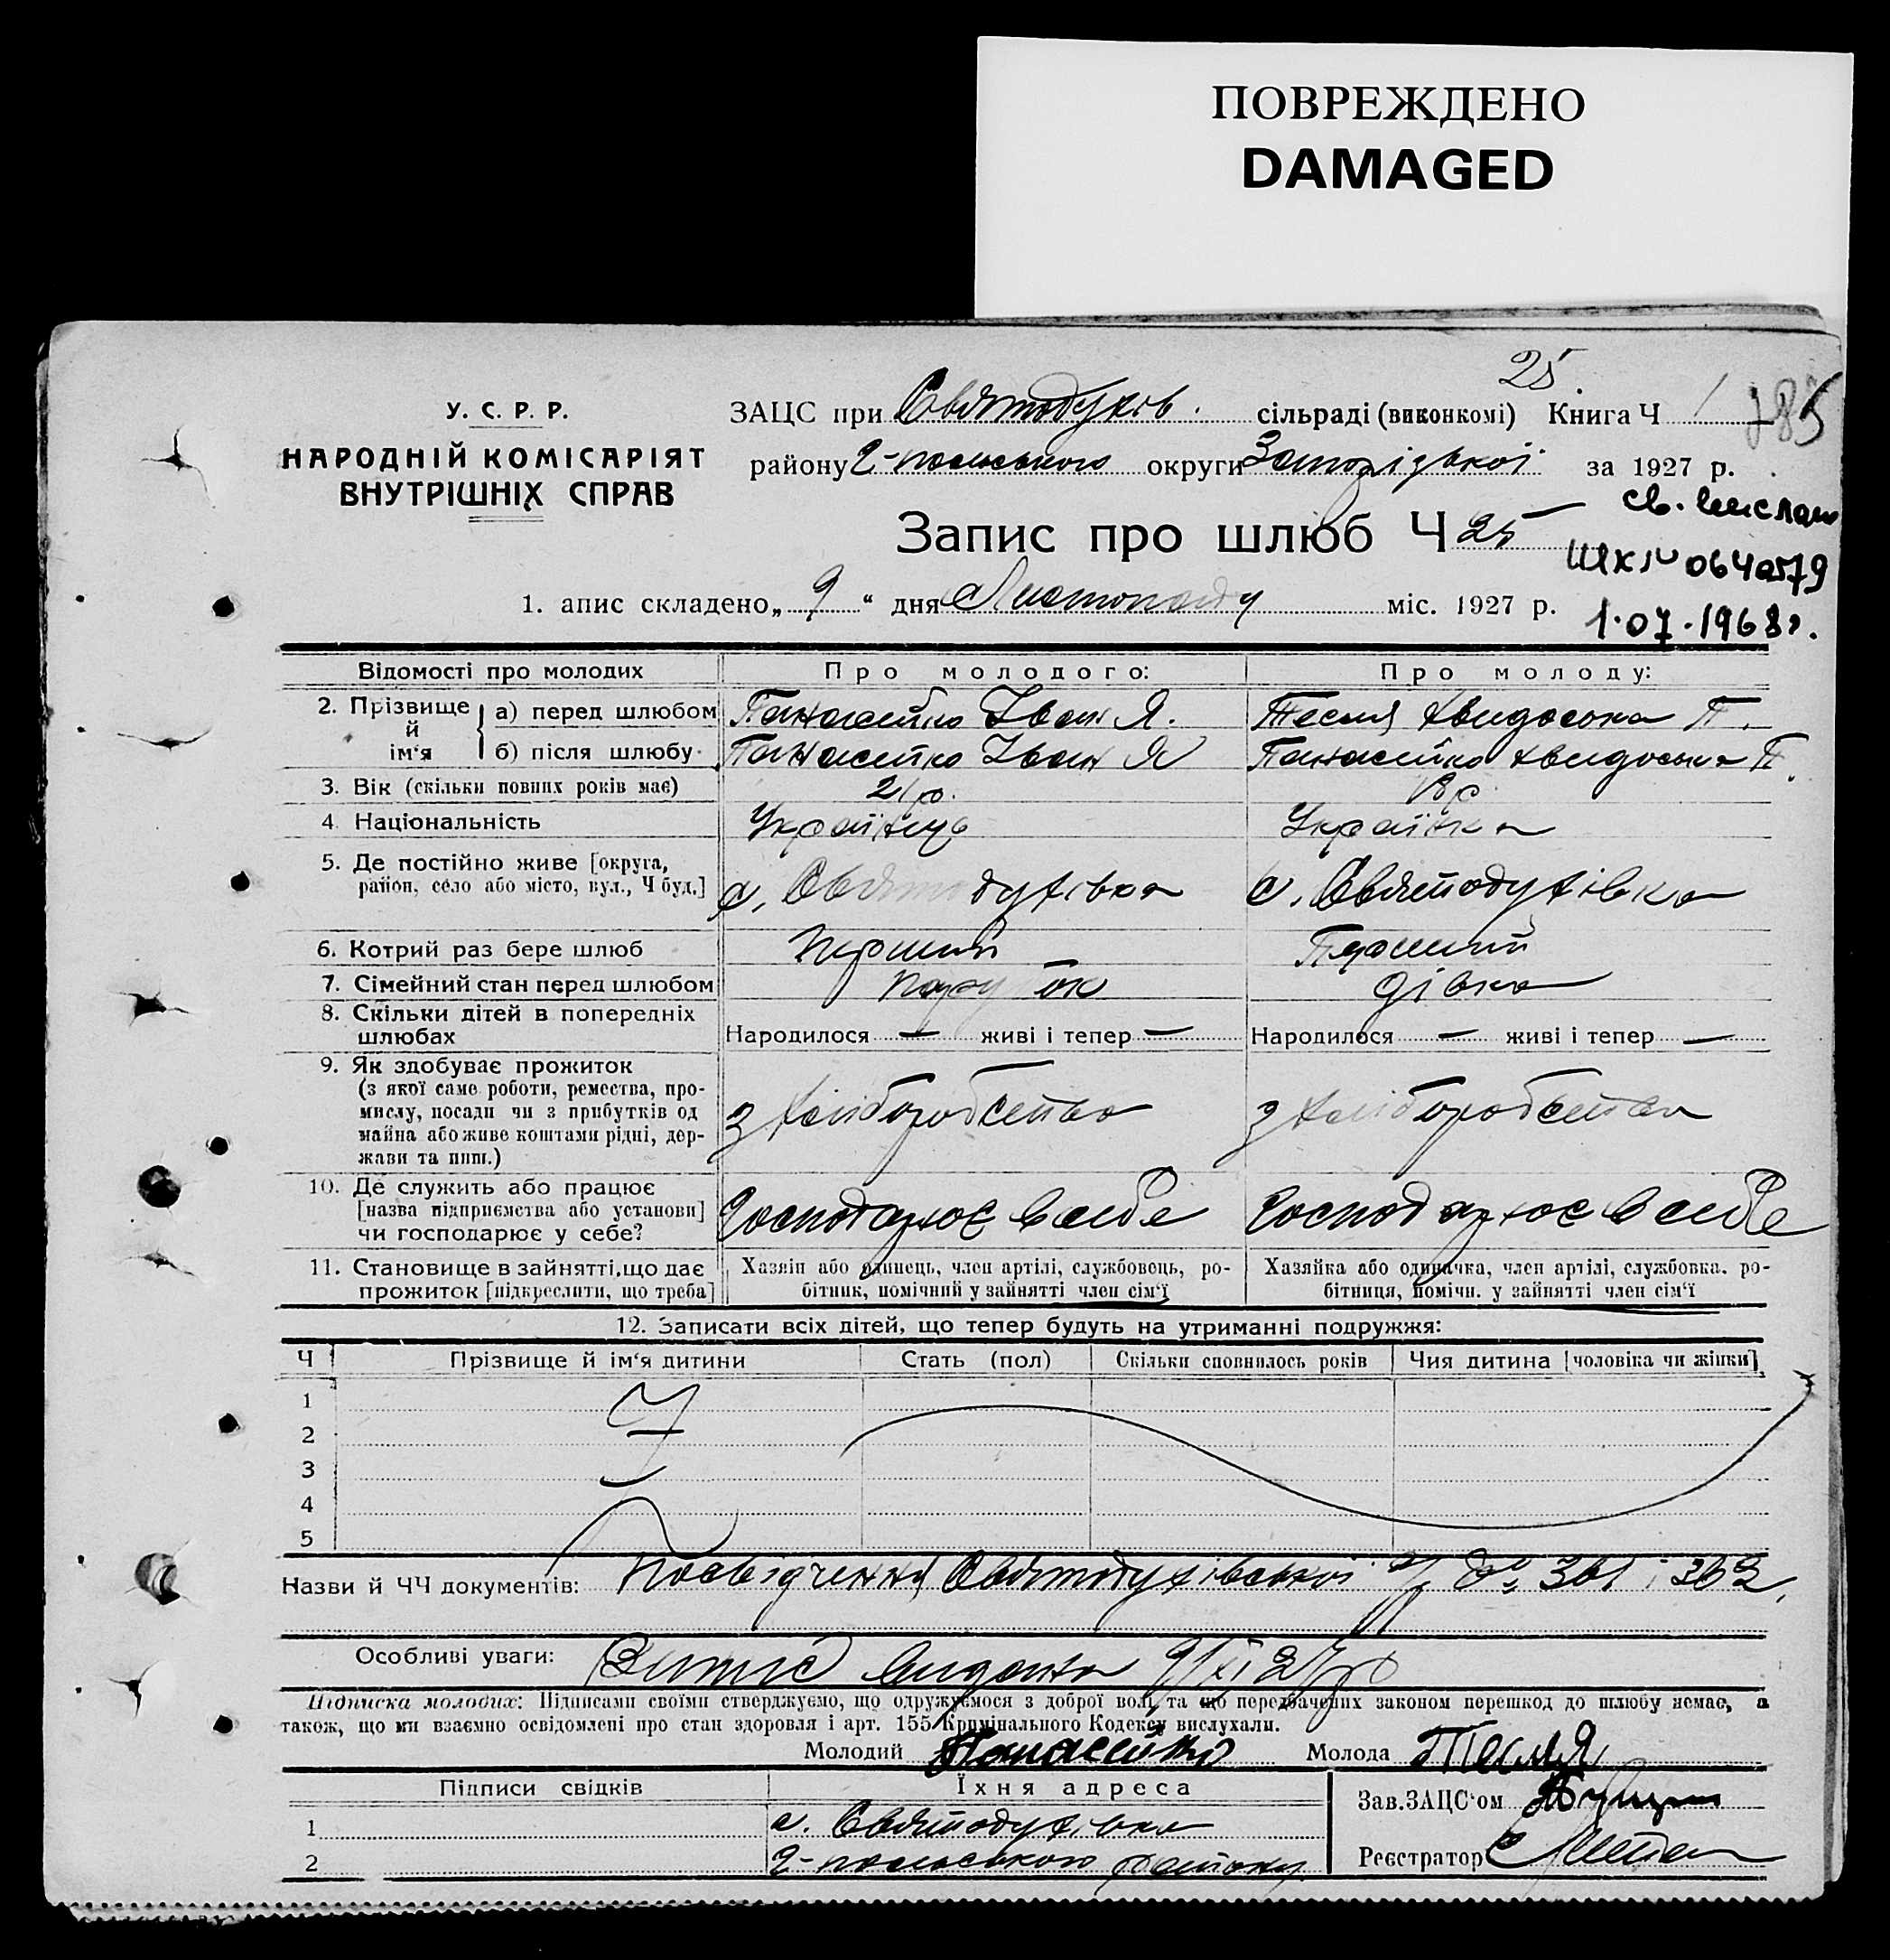 ПОВРЕЖДЕНО
DAMAGED
25.
У. С. Р. Р.
НАРОДНІЙ КОМІСАРІЯТ
ВНУТРІШНІХ СПРАВ
ЗАЦС при Святодухів. сільраді (виконкомі) Книга Ч 1
району 2-польського округи Запорізької за 1927 р.
Запис про шлюб Ч 25
св. выслано
ШЯ № 0640579
1.07.1968г.
1. апис складено „ 9 “ дня Листопаду міс. 1927 р.
Відомості про молодих Про молодого: Про молоду:
2. Прізвище й ім‘я а) перед шлюбом Панасейко Іван Я. Тесля Хвидоська П.
б) після шлюбу Панасейко Іван Я Панасейко Хвидоська П.
3. Вік (скільки повних років має) 21 р. 18 р.
4. Національність Українець Українка
5. Де постійно живе [округа,
район, село або місто, вул., Ч буд.] с. Святодухівка с. Святодухівка
6. Котрий раз бере шлюб Перший Перший
7. Сімейний стан перед шлюбом Парубок дівка
8. Скільки дітей в попередніх
шлюбах Народилося — живі і тепер — Народилося — живі і тепер —
9. Як здобуває прожиток
(з якої саме роботи, ремества, про-
мислу, посади чи з прибутків од
майна або живе коштами рідні, дер-
жави та инш.) з хліборобства з хліборобства
10. Де служить або працює
[назва підприємства або установи]
чи господарює у себе? Господарює в себе Господарює в себе
11. Становище в зайнятті, що дає
прожиток [підкреслити, що треба]
Хазяїн або одинець, член артілі, службовець, ро-
бітник, помічний у зайнятті член сім‘ї
Хазяйка або одиначка, член артілі, службовка. ро-
бітниця, помічн. у зайнятті член сім‘ї
12. Записати всіх дітей, що тепер будуть на утриманні подружжя:
Ч Прізвище й ім‘я дитини Стать (пол) Скільки сповнилось років Чия дитина [чоловіка чи жінки]
1
2
3
4
5
Назви й ЧЧ документів: Посвідчення Святодухівської с/р 361 і 362,
Особливі уваги: Витяг видано 9/XI 27 р
Підписка молодих: Підписами своїми стверджуємо, що одружуємося з доброї волі, та що передбачених законом перешкод до шлюбу немає, а
також, що ми взаємно освідомлені про стан здоровля і арт. 155 Кримінального Кодексу вислухали.
Молодий Панасейко Молода Тесля
Підписи свідків Їхня адреса
Зав. ЗАЦС‘ом
1 с. Святодухівка
2 2-польського району
Реєстратор